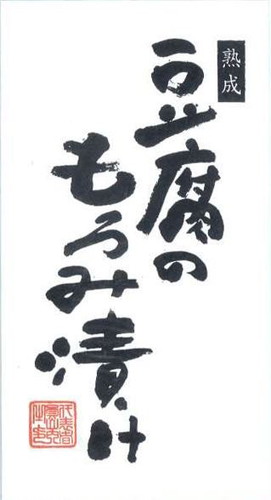 熟成
豆腐の
もろみ漬け